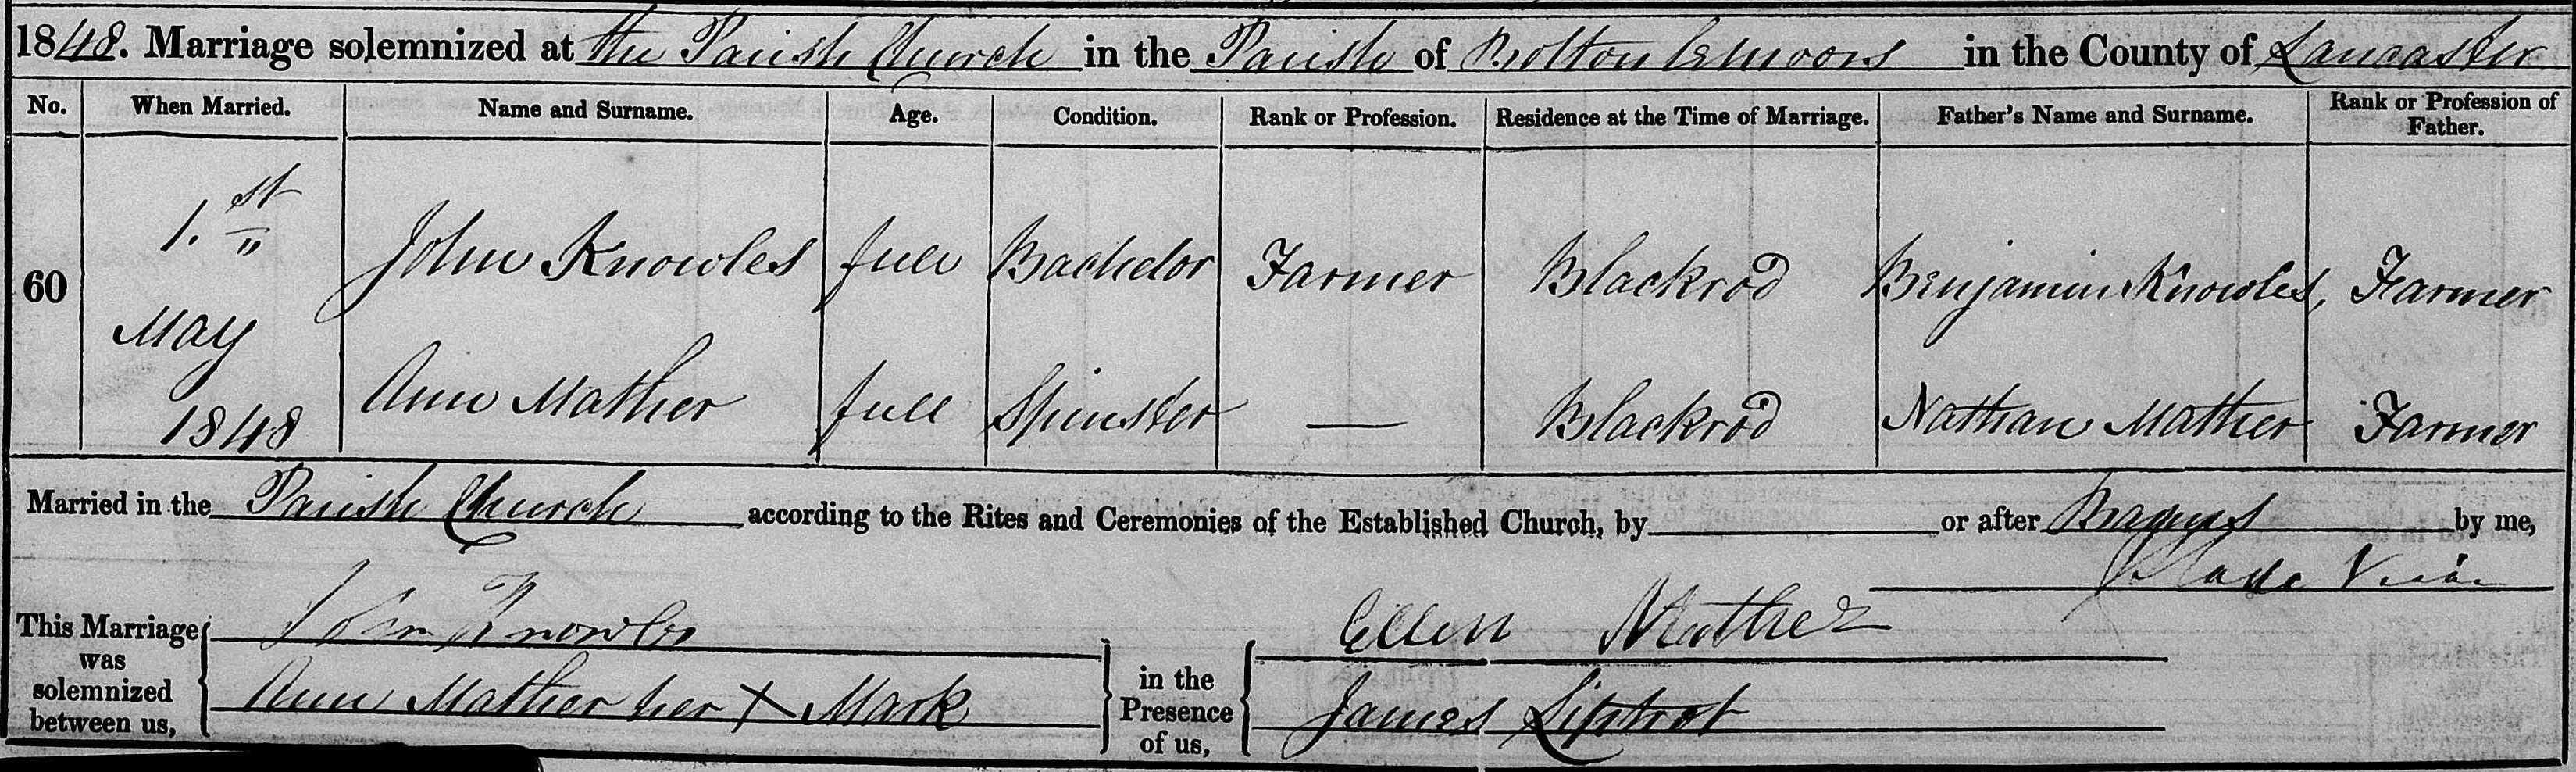 1848. Marriage solemnized at the Parish Church in the Parish of Bolton le moors in the County of Lancaster
No. When Married. Name and Surname. Age. Condition. Rank or Profession. Residence at the Time of Marriage. Father's Name and Surname. Rank or Profession of Father.
60 1.st May 1848
John Knowles full Bachelor Farmer Blackrod Benjamin Knowles, Farmer
Ann Mather full Spinster — Blackrod Nathan Mather Farmer
Married in the Parish Church according to the Rites and Ceremonies of the Established Church, by or after Banns by me,
Slade Vicar
This Marriage was solemnized between us,
John Knowles
Ann Mather her X Mark
in the Presence of us,
Ellen Mather
James Liptrot